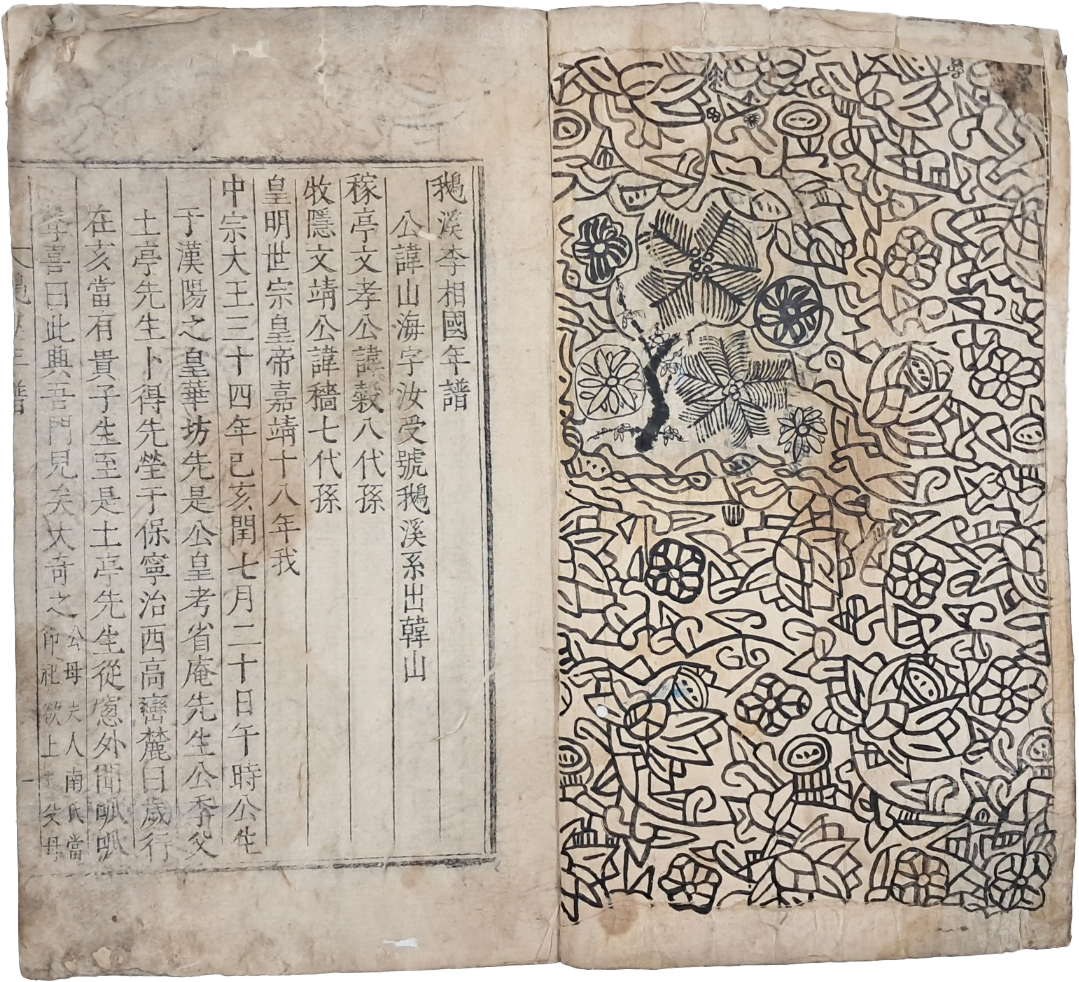 鵝溪李相國年譜
公諱山海字汝受號鵝溪系出韓山
稼亭文孝公諱糓八代孫
牧隱文靖公諱穡七代孫
皇明世宗皇帝嘉靖十八年我
中宗大王三十四年己亥閏七月二十日午時公生
于漢陽之皇華坊先是公皇考省庵先生公季父
土亭先生卜得先塋于保寧治西高巒麓曰歲行
在亥當有貴子生至是土亭先生從窓外聞呱呱
喜曰此典吾門兒矣大奇之
公母夫人南氏當
欲上